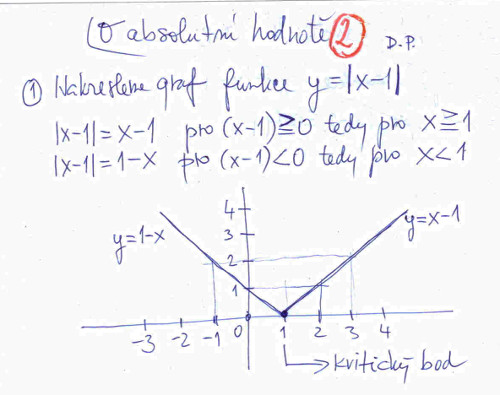 O absolutní hodnotě 2 D.P.
① Nakresleme graf funkce y=|x-1|
|x-1|=x-1 pro (x-1)≧0 tedy pro x≧1
|x-1|=1-x pro (x-1)<0 tedy pro x<1
4
3
2
1
y=1-x
y=x-1
-3 -2 -1 0 1 2 3 4
kritický bod